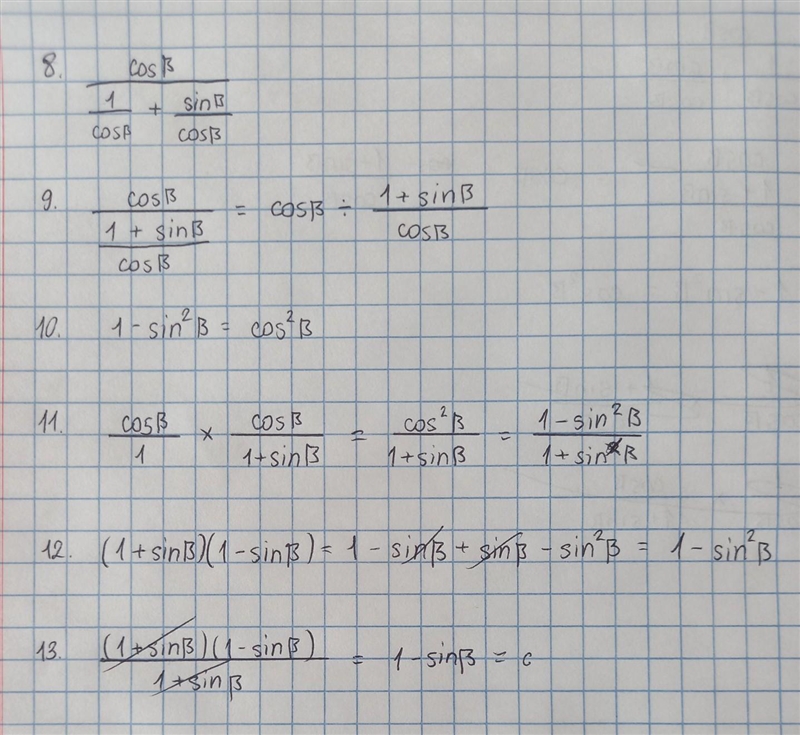 8. cosβ / (1/cosβ + sinβ/cosβ)
9. cosβ / ((1 + sinβ)/cosβ) = cosβ ÷ (1 + sinβ)/cosβ
10. 1 - sin²β = cos²β
11. cosβ/1 × cosβ/(1+sinβ) = cos²β/(1+sinβ) = (1-sin²β)/(1+sinβ)
12. (1+sinβ)(1-sinβ) = 1 - sinβ + sinβ - sin²β = 1 - sin²β
13. (1+sinβ)(1-sinβ)/(1+sinβ) = 1-sinβ = c